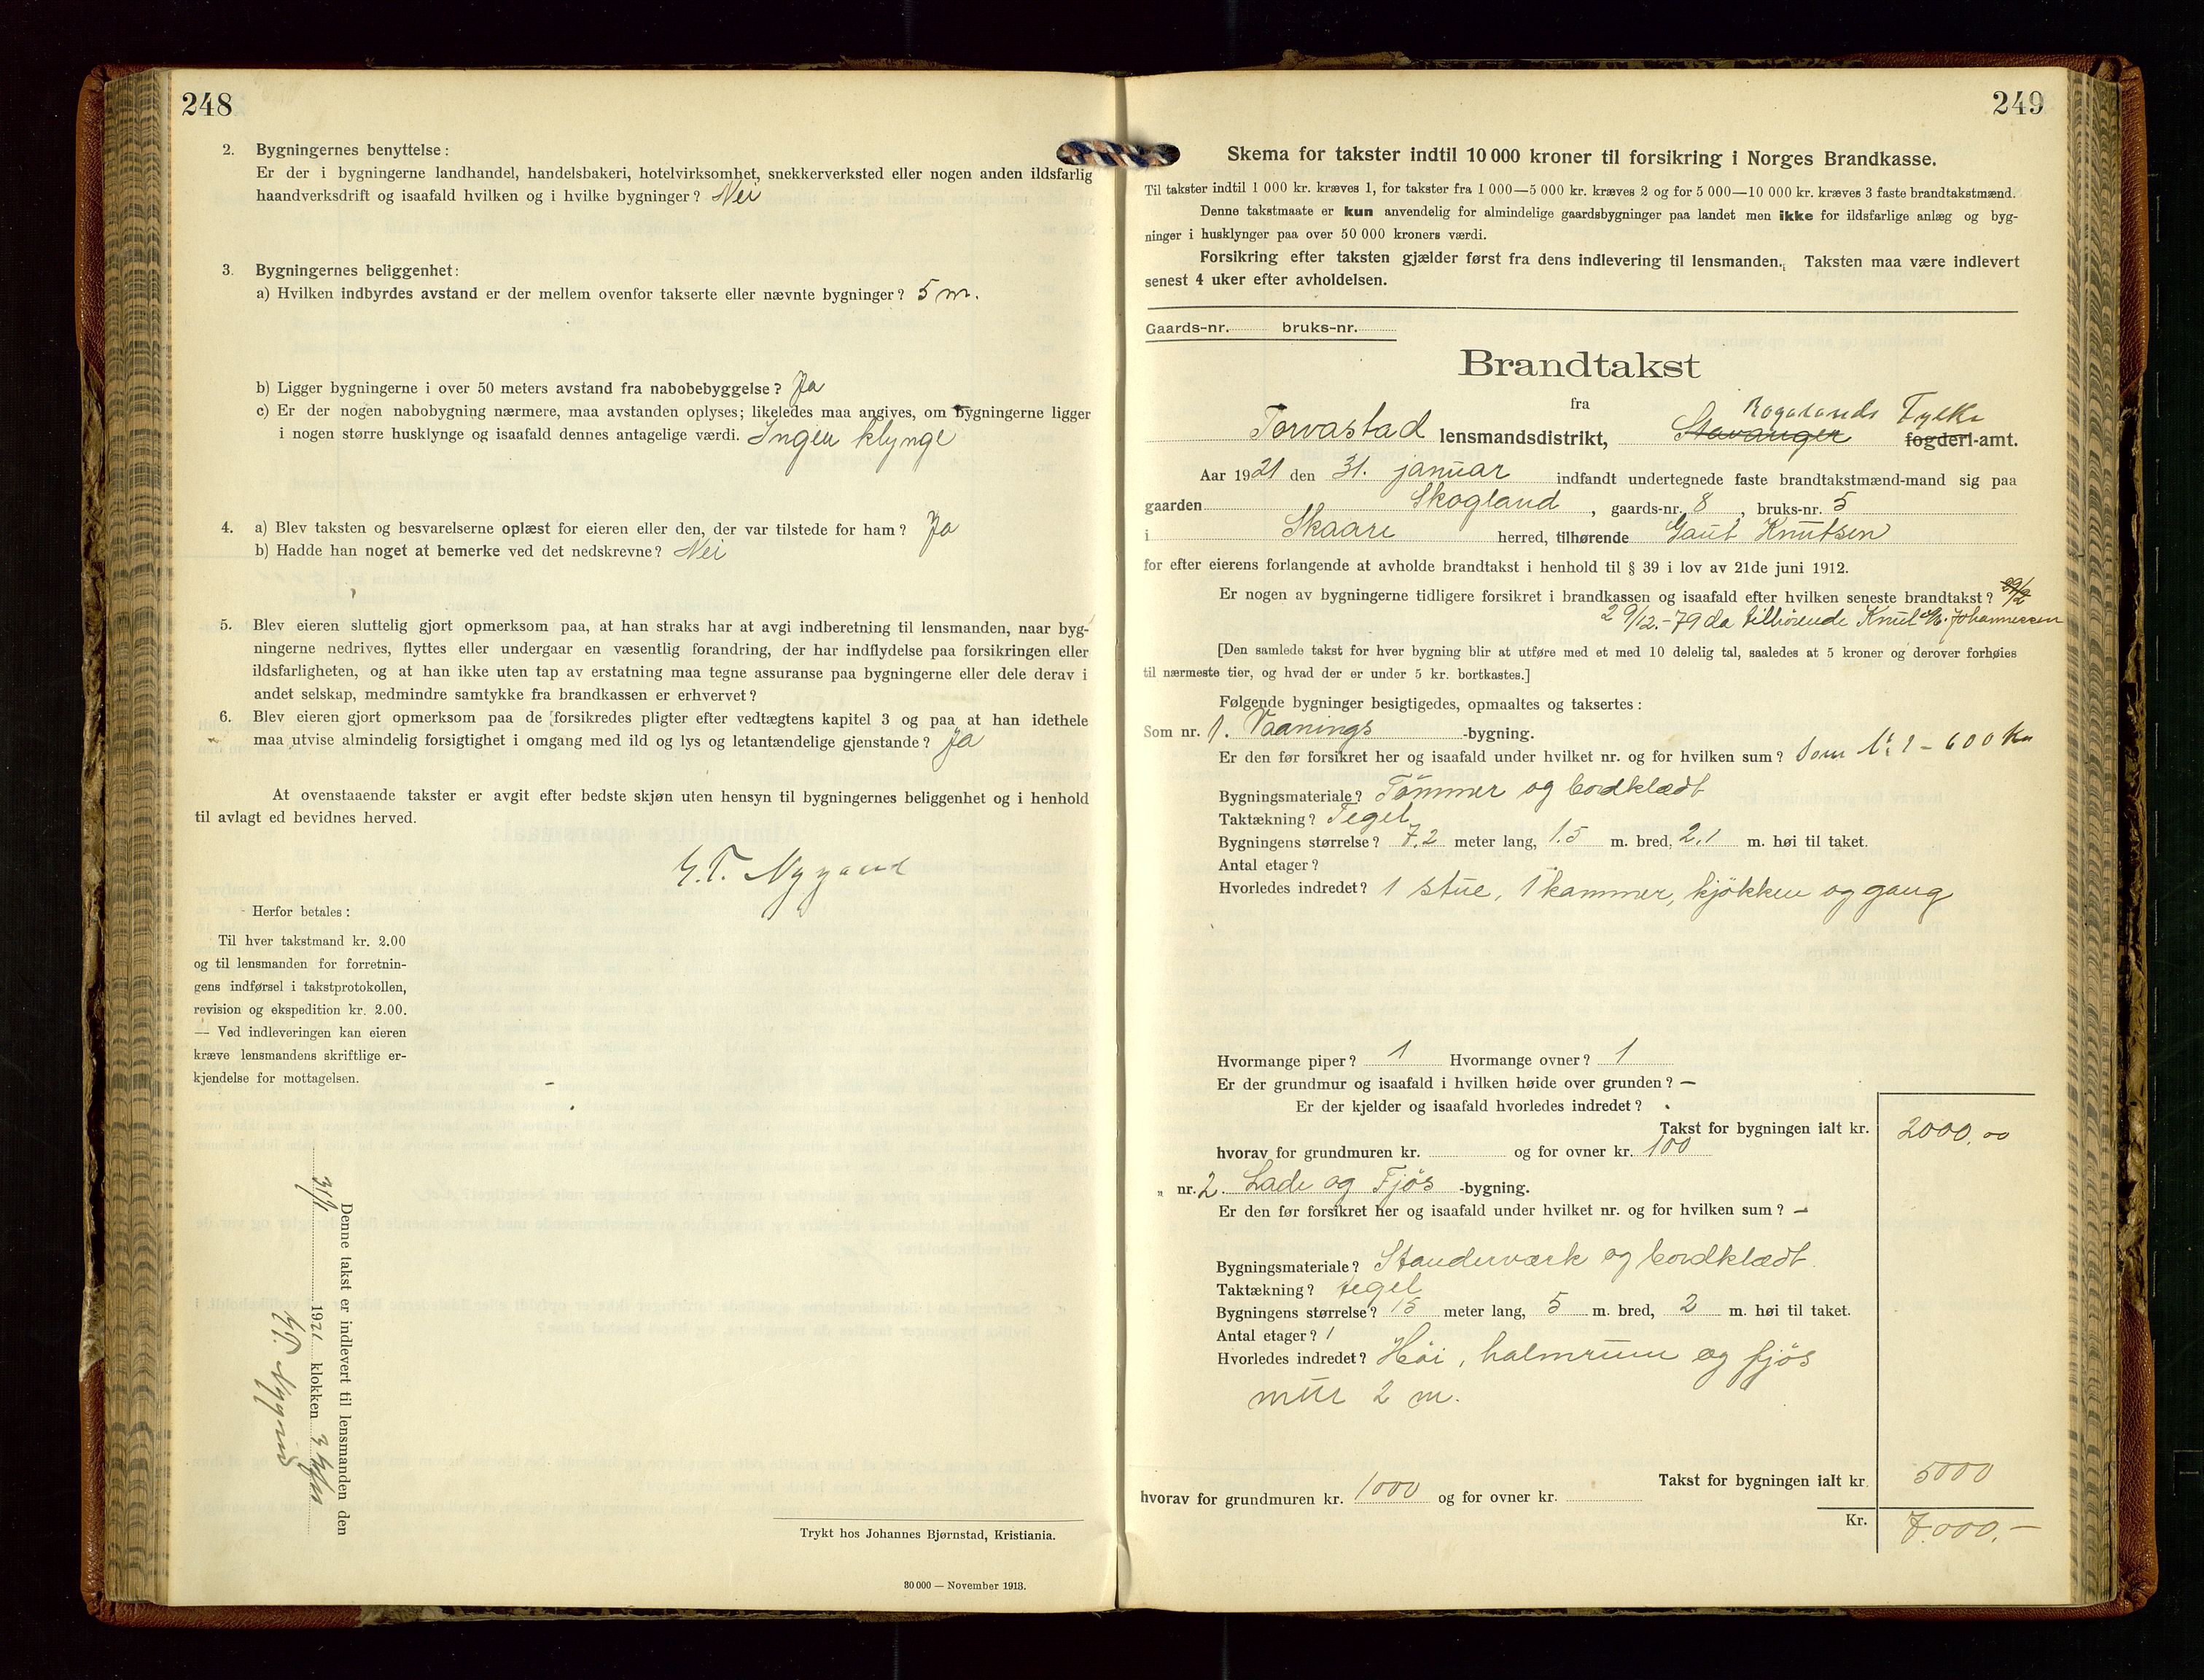 248
2. Bygningernes benyttelse:
Er der i bygningerne landhandel, handelsbakeri, hotelvirksomhet, snekkerverksted eller nogen anden ildsfarlig
haandverksdrift og isaafald hvilken og i hvilke bygninger? Nei
3. Bygningernes beliggenhet:
a) Hvilken indbyrdes avstand er der mellem ovenfor takserte eller nævnte bygninger? 5 m.
b) Ligger bygningerne i over 50 meters avstand fra nabobebyggelse? Ja
c) Er der nogen nabobygning nærmere, maa avstanden oplyses; likeledes maa angives, om bygningerne ligger
i nogen større husklynge og isaafald dennes antagelige værdi. Ingen klynge
4. a) Blev taksten og besvarelserne oplæst for eieren eller den, der var tilstede for ham? Ja
b) Hadde han noget at bemerke ved det nedskrevne? Nei
5. Blev eieren sluttelig gjort opmerksom paa, at han straks har at avgi indberetning til lensmanden, naar byg-
ningerne nedrives, flyttes eller undergaar en væsentlig forandring, der har indflydelse paa forsikringen eller
ildsfarligheten, og at han ikke uten tap av erstatning maa tegne assuranse paa bygningerne eller dele derav i
andet selskap, medmindre samtykke fra brandkassen er erhvervet?
6. Blev eieren gjort opmerksom paa de forsikredes pligter efter vedtægtens kapitel 3 og paa at han idethele
maa utvise almindelig forsigtighet i omgang med ild og lys og letantændelige gjenstande? Ja
At ovenstaaende takster er avgit efter bedste skjøn uten hensyn til bygningernes beliggenhet og i henhold
til avlagt ed bevidnes herved.
Nygaard
Herfor betales:
Til hver takstmand kr. 2.00
og til lensmanden for forretnin-
gens indførsel i takstprotokollen,
revision og ekspedition kr. 2.00.
— Ved indleveringen kan eieren
kræve lensmandens skriftlige er-
kjendelse for mottagelsen.
Denne takst er indlevert til lensmanden den
31/1 1921 klokken 3
Nygaard
Trykt hos Johannes Bjørnstad, Kristiania.
30 000 — November 1913.
249
Skema for takster indtil 10 000 kroner til forsikring i Norges Brandkasse.
Til takster indtil 1 000 kr. kræves 1, for takster fra 1 000—5 000 kr. kræves 2 og for 5 000—10 000 kr. kræves 3 faste brandtakstmænd.
Denne takstmaate er kun anvendelig for almindelige gaardsbygninger paa landet men ikke for ildsfarlige anlæg og byg-
ninger i husklynger paa over 50 000 kroners værdi.
Forsikring efter taksten gjælder først fra dens indlevering til lensmanden. Taksten maa være indlevert
senest 4 uker efter avholdelsen.
Gaards-nr. bruks-nr.
Brandtakst
fra
Rogalands Fylke
Torvastad lensmandsdistrikt, Stavanger fogderi-amt.
Aar 1921 den 31. januar indfandt undertegnede faste brandtakstmænd-mand sig paa
gaarden Skogland, gaards-nr. 8, bruks-nr. 5
i Skaare herred, tilhørende Gaut Knutsen
for efter eierens forlangende at avholde brandtakst i henhold til § 39 i lov av 21de juni 1912.
Er nogen av bygningerne tidligere forsikret i brandkassen og isaafald efter hvilken seneste brandtakst? 29/12
29/12.-79 da tilhørende Knut Johannessen
[Den samlede takst for hver bygning blir at utføre med et med 10 delelig tal, saaledes at 5 kroner og derover forhøies
til nærmeste tier, og hvad der er under 5 kr. bortkastes.]
Følgende bygninger besigtigedes, opmaaltes og taksertes:
Som nr. 1. Vaanings-bygning.
Er den før forsikret her og isaafald under hvilket nr. og for hvilken sum? Som № 1 – 600 Kr
Bygningsmateriale? Tømmer og bordklædt
Taktækning? Tegel
Bygningens størrelse? 7.2 meter lang, 1.5 m. bred, 2.1 m. høi til taket.
Antal etager?
Hvorledes indredet? 1 stue, 1 kammer, kjøkken og gang
Hvormange piper? 1 Hvormange ovner? 1
Er der grundmur og isaafald i hvilken høide over grunden? —
Er der kjelder og isaafald hvorledes indredet?
Takst for bygningen ialt kr. 2000,00
hvorav for grundmuren kr. og for ovner kr. 100
„ nr. 2. Lade og Fjøs-bygning.
Er den før forsikret her og isaafald under hvilket nr. og for hvilken sum? —
Bygningsmateriale? Standerværk og bordklædt.
Taktækning? tegel
Bygningens størrelse? 15 meter lang, 5 m. bred, 2 m. høi til taket.
Antal etager? 1
Hvorledes indredet? Høi, halmrum og fjøs
mur 2 m.
Takst for bygningen ialt kr. 5000
hvorav for grundmuren kr. 1000 og for ovner kr.
Kr. 7.000,—